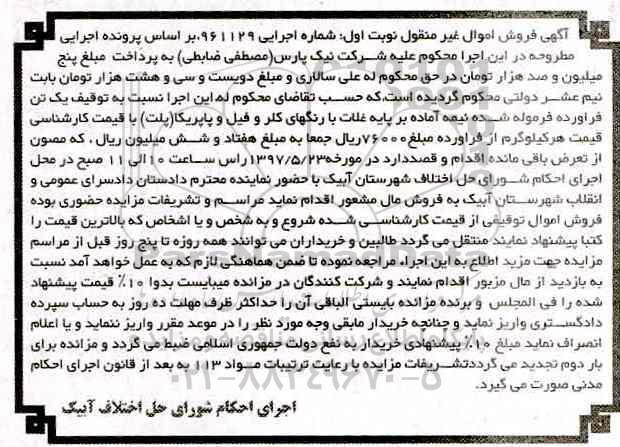 آگهی فروش اموال غیر منقول نوبت اول: شماره اجرایی ۹۶۱۱۲۹،بر اساس پرونده اجرایی
مطروحه در این اجرا محکوم علیه شرکت نیک پارس(مصطفی ضابطی) به پرداخت مبلغ پنج
میلیون و صد هزار تومان در حق محکوم له علی سالاری و مبلغ دویست و سی و هشت هزار تومان بابت
نیم عشر دولتی محکوم گردیده است،که حسب تقاضای محکوم له این اجرا نسبت به توقیف یک تن
فرآورده فرموله شده نیمه آماده بر پایه غلات با رنگهای کلر و فیل و پاپریکا(پلت) با قیمت کارشناسی
قیمت هرکیلوگرم از فرآورده مبلغ۷۶۰۰۰ریال جمعا به مبلغ هفتاد و شش میلیون ریال ، که مصون
از تعرض باقی مانده اقدام و قصددارد در مورخه۱۳۹۷/۵/۲۳راس ساعت ۱۰الی ۱۱ صبح در محل
اجرای احکام شورای حل اختلاف شهرستان آبیک با حضور نماینده محترم دادستان دادسرای عمومی و
انقلاب شهرستان آبیک به فروش مال مشعور اقدام نماید مراسم و تشریفات مزایده حضوری بوده
فروش اموال توقیفی از قیمت کارشناسی شده شروع و به شخص و یا اشخاص که بالاترین قیمت را
کتبا پیشنهاد نمایند منتقل می گردد طالبین و خریداران می توانند همه روزه تا پنج روز قبل از مراسم
مزایده جهت مزید اطلاع به این اجرا، مراجعه نموده تا ضمن هماهنگی لازم که به عمل خواهد آمد نسبت
به بازدید از مال مزبور اقدام نمایند و شرکت کنندگان در مزائده میبایست بدوا ۱۰٪ قیمت پیشنهاد
شده را فی المجلس و برنده مزائده بایستی الباقی آن را حداکثر ظرف مهلت ده روز به حساب سپرده
دادگستری واریز نماید و چنانچه خریدار مابقی وجه مورد نظر را در موعد مقرر واریز ننماید و یا اعلام
انصراف نماید مبلغ ۱۰٪ پیشنهادی خریدار به نفع دولت جمهوری اسلامی ضبط می گردد و مزائده برای
بار دوم تجدید می گرددتشریفات مزایده با رعایت ترتیبات مواد ۱۱۳ به بعد از قانون اجرای احکام
مدنی صورت می گیرد.
۰۲۱-۸۸۳۴۹۶۷۰-۵
اجرای احکام شورای حل اختلاف آبیک